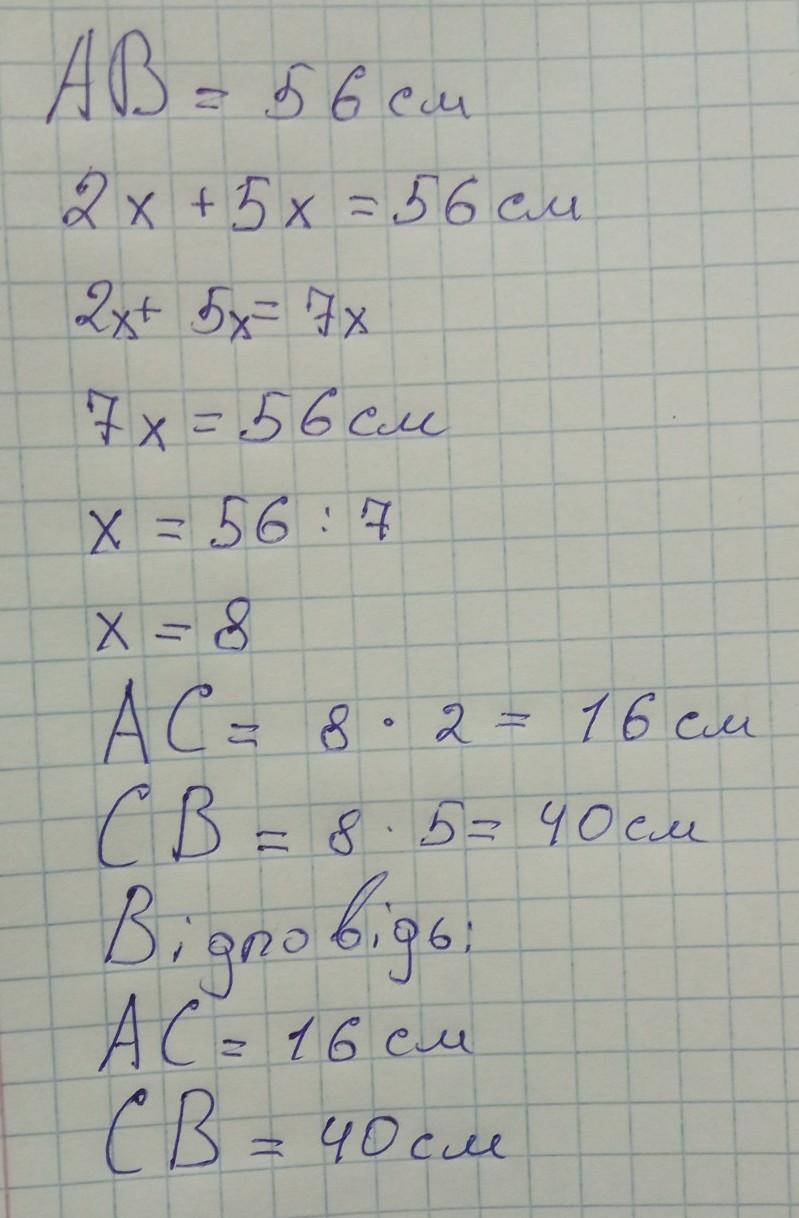 AB = 56 см
2x + 5x = 56 см
2x + 5x = 7x
7x = 56 см
x = 56 : 7
x = 8
AC = 8 · 2 = 16 см
CB = 8 · 5 = 40 см
Відповідь:
AC = 16 см
CB = 40 см